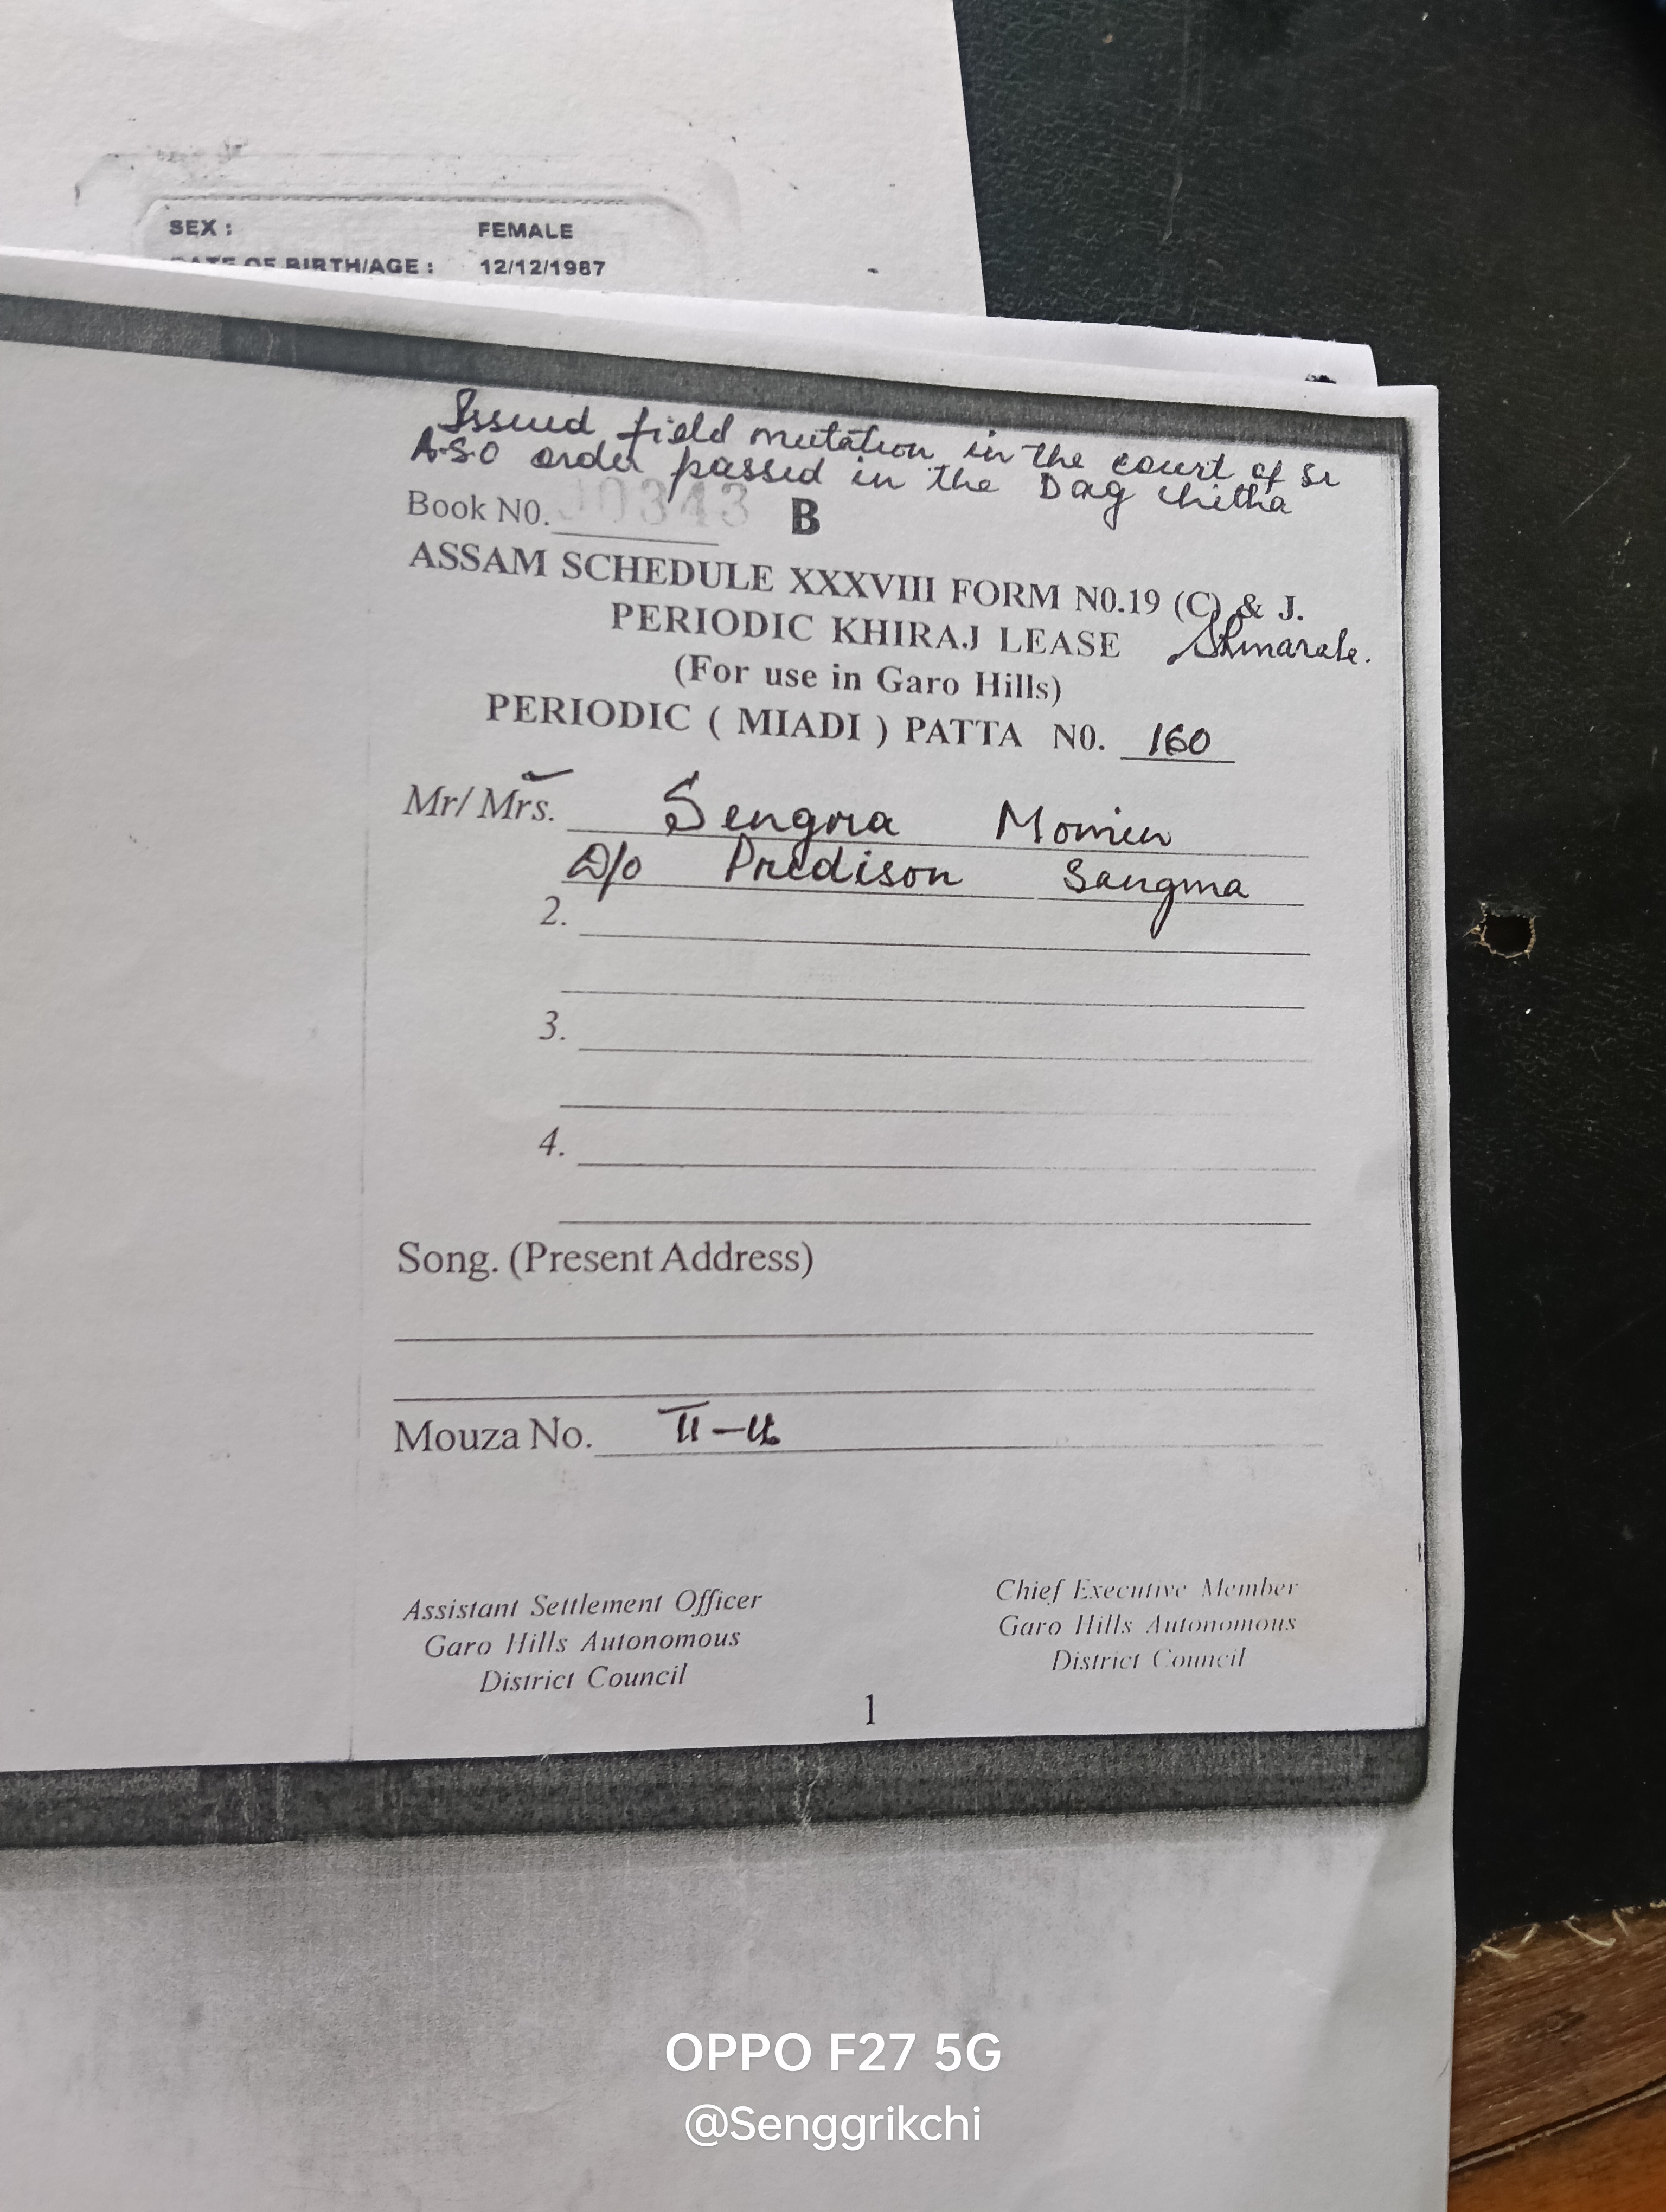 SEX : FEMALE
DATE OF BIRTH/AGE : 12/12/1987
Issued field mutation in the court of Sr
A.S.O order passed in the Dag chitha
Book N0. 10343 B
ASSAM SCHEDULE XXXVIII FORM N0.19 (C) & J.
PERIODIC KHIRAJ LEASE
(For use in Garo Hills)
PERIODIC ( MIADI ) PATTA N0. 160
Mr/ Mrs. Sengma Momin
D/o Predison Sangma
2.
3.
4.
Song. (Present Address)
Mouza No. II-
Assistant Settlement Officer
Garo Hills Autonomous
District Council
Chief Executive Member
Garo Hills Autonomous
District Council
1
OPPO F27 5G
@Senggrikchi